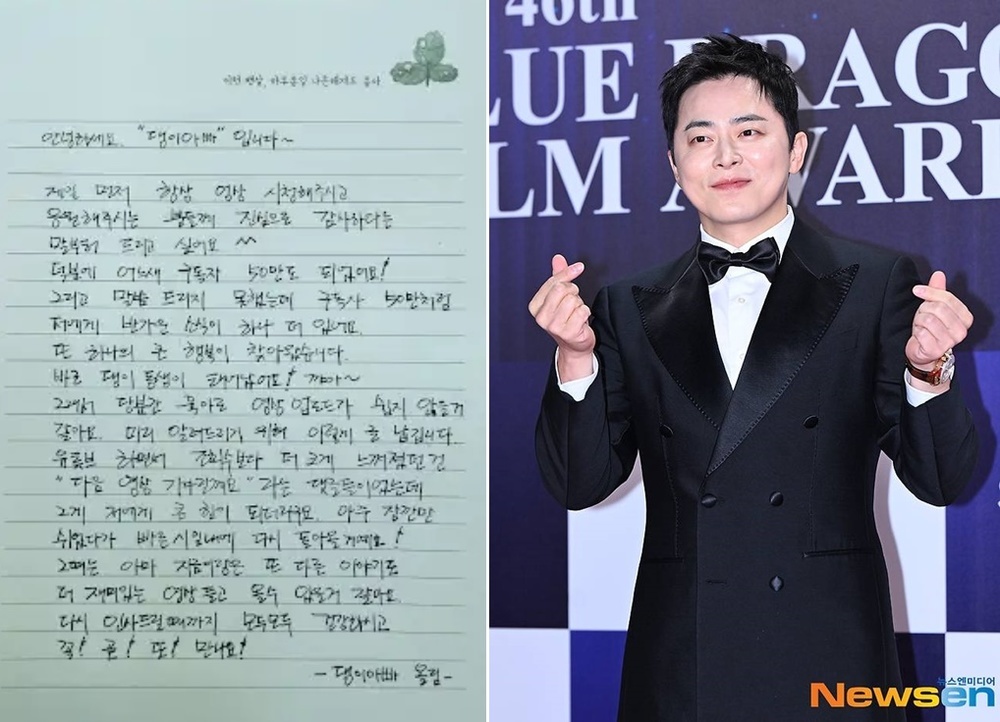 어떤 병상, 아무온일 나은에게도 음아
안녕하세요. "댕이아빠" 입니다~
제일 먼저 항상 영상 시청해주시고
응원해주시는 분들께 진심으로 감사하다는
말부터 드리고 싶어요 ^^
덕분에 어느새 구독자 50만도 되었어요!
그리고 말씀 드리지 못했는데 구독자 50만처럼
저에게 반가운 소식이 하나 더 있어요.
또 하나의 큰 행복이 찾아왔습니다.
바로 댕이 동생이 태어났어요! 꺄아~
그래서 당분간 육아로 영상 업로드가 쉽지 않을거
같아요. 미리 알려드리기 위해 이렇게 글 남깁니다
유튜브 하면서 조회수보다 더 크게 느껴졌던 건
"다음 영상 기다릴게요" 라는 댓글들이었는데
그게 저에게 큰 힘이 되더라구요. 아주 잠깐만
쉬었다가 빠른시일내에 다시 돌아올게요!
그때는 아마 지금이랑은 또 다른 이야기로
더 재미있는 영상 들고 올수 있을거 같아요.
다시 인사드릴때까지 모두모두 건강하시고
꼭! 곧! 또! 만나요!
- 댕이아빠 올림 -
46th
LUE DRAGO
LM AWAR
뉴스엔미디어
Newsen